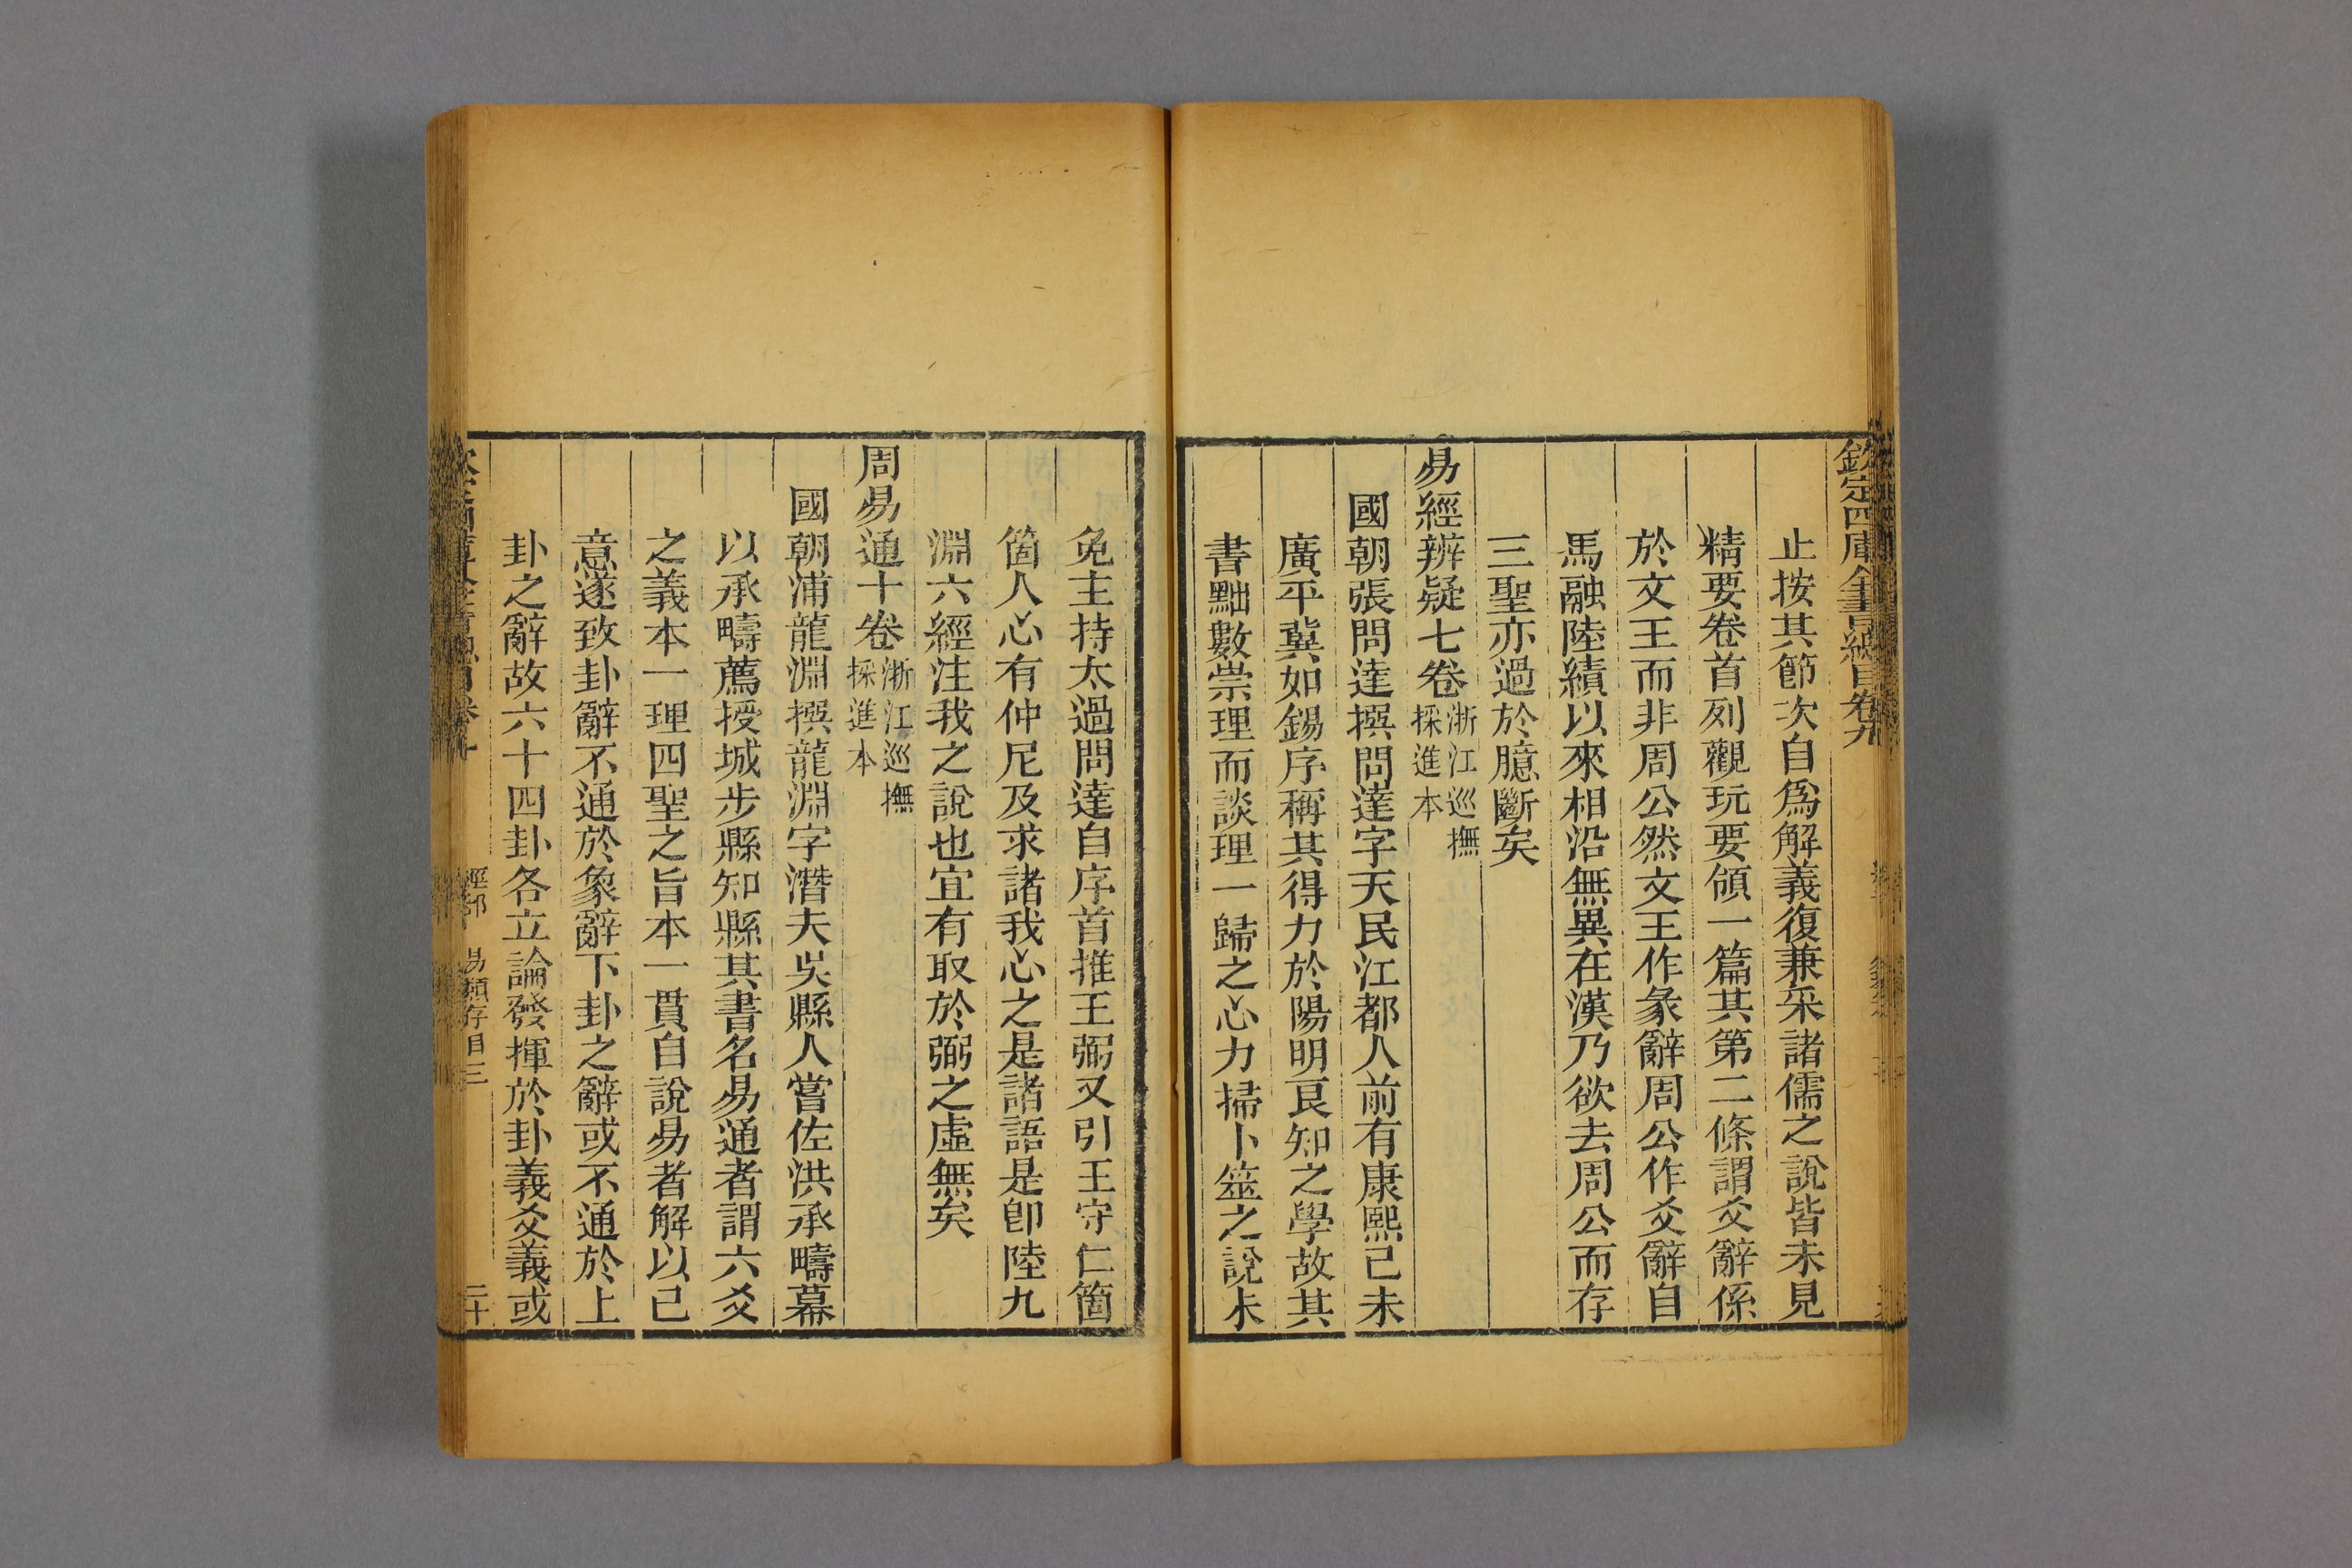 欽定四庫全書總目卷九
止按其節次自為解義復兼采諸儒之說皆未見
精要卷首列觀玩要領一篇其第二條謂爻辭係
於文王而非周公然文王作彖辭周公作爻辭自
馬融陸績以來相沿無異在漢乃欲去周公而存
三聖亦過於臆斷矣
易經辨疑七卷浙江巡撫採進本
國朝張問達撰問達字天民江都人前有康熙己未
廣平冀如錫序稱其得力於陽明良知之學故其
書黜數崇理而談理一歸之心力掃卜筮之說未
免主持太過問達自序首推王弼又引王守仁箇
箇人心有仲尼及求諸我心之是諸語是卽陸九
淵六經注我之說也宜有取於弼之虛無矣
周易通十卷浙江巡撫採進本
國朝浦龍淵撰龍淵字潛夫吳縣人嘗佐洪承疇幕
以承疇薦授城步縣知縣其書名易通者謂六爻
之義本一理四聖之旨本一貫自說易者解以己
意遂致卦辭不通於彖辭下卦之辭或不通於上
卦之辭故六十四卦各立論發揮於卦義爻義或
經部 易類存目三 二十